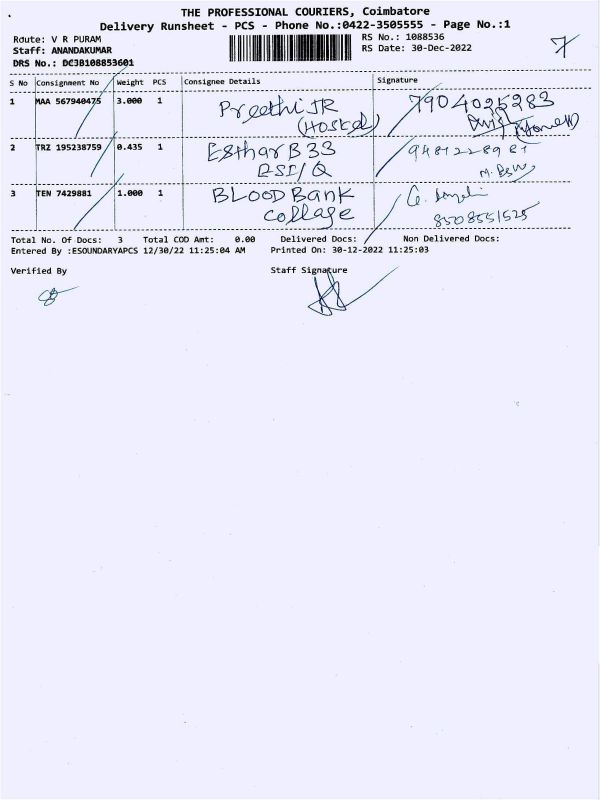 THE PROFESSIONAL COURIERS, Coimbatore
Delivery Runsheet - PCS - Phone No.:0422-3505555 - Page No.:1
Route: V R PURAM
Staff: ANANDAKUMAR
DRS No.: DC3B108853601
RS No.: 1088536
RS Date: 30-Dec-2022
7
S No Consignment No Weight PCS Consignee Details Signature
1 MAA 567940475 3.000 1 Preethi JR 7904025283
(Hostel)
2 TRZ 195238759 0.435 1 Esthar B 33
ESI/Q
3 TEN 7429881 1.000 1 BLOOD Bank
collage 8508551525
Total No. Of Docs: 3 Total COD Amt: 0.00 Delivered Docs: Non Delivered Docs:
Entered By :ESOUNDARYAPCS 12/30/22 11:25:04 AM Printed On: 30-12-2022 11:25:03
Verified By Staff Signature